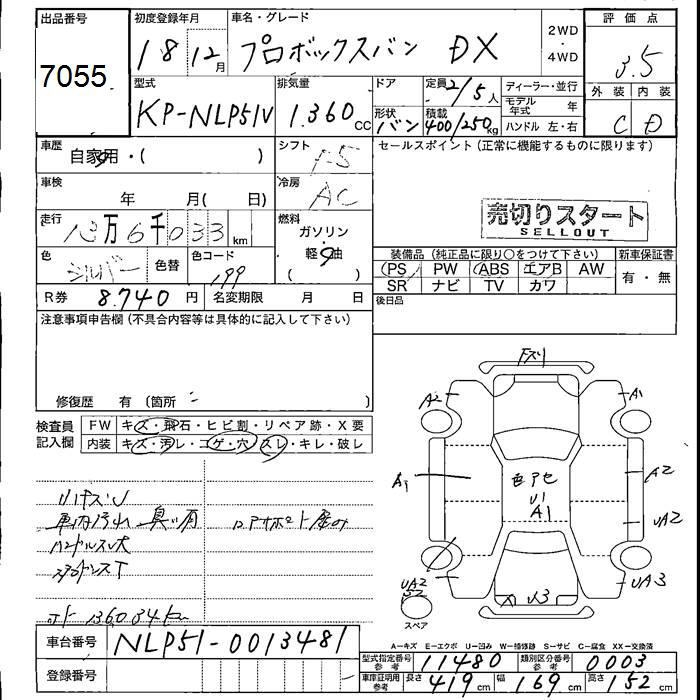 出品番号
7055
初度登録年月
18 12月
車名・グレード
プロボックスバン DX
2WD
・
4WD
評価点
3.5
外装 内装
C D
型式
KP-NLP51V
排気量
1.360 CC
ドア
形状
バン
定員 2/5人
積載
400/250kg
ディーラー・並行
モデル年式 年
ハンドル 左・右
車歴
自家用・( )
シフト
F5
セールスポイント(正常に機能するものに限ります)
売切りスタート
SELLOUT
車検
年 月( 日)
冷房
AC
走行
13万6千033 km
燃料
ガソリン・
軽油
( )
色
シルバー
色替
色コード
199
装備品(純正品に限り○をつけて下さい)
PS PW ABS エアB AW
SR ナビ TV カワ
新車保証書
有・無
後日品
R券 8.740 円
名変期限 月 日
注意事項申告欄(不具合内容等は具体的に記入して下さい)
修復歴 有(箇所
検査員
記入欄
FW キズ・飛石・ヒビ割・リペア跡・X要
内装 キズ・汚レ・コゲ・穴・スレ・キレ・破レ
A2
A1
A1
A2
UA2
色アセ
UI
A1
UA2
UA3
スペア
A=キズ E=エクボ U=凹み W=補修跡 S=サビ C=腐食 XX=交換済
車台番号 NLP51-0013481
登録番号
型式指定番号 参考 11480
類別区分番号 参考 0003
車庫証明用 参考 長さ 419cm 幅 169cm 高さ 152cm